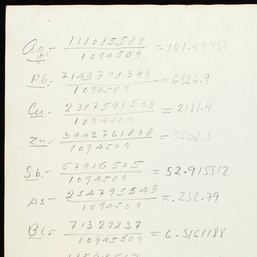 111085589
1094509 = 101.49436
Pb. 7143798343
1094509 = 6526.9
Cu. 2387591538
1094509 = 2181.9
Zn. 3942761838
1094509 = 3602.3
Sb. 57916505
1094509 = 52.915512
As. 254795543
1094509 = .232.79
Bi. 71322237
10945509 = 6.5161188